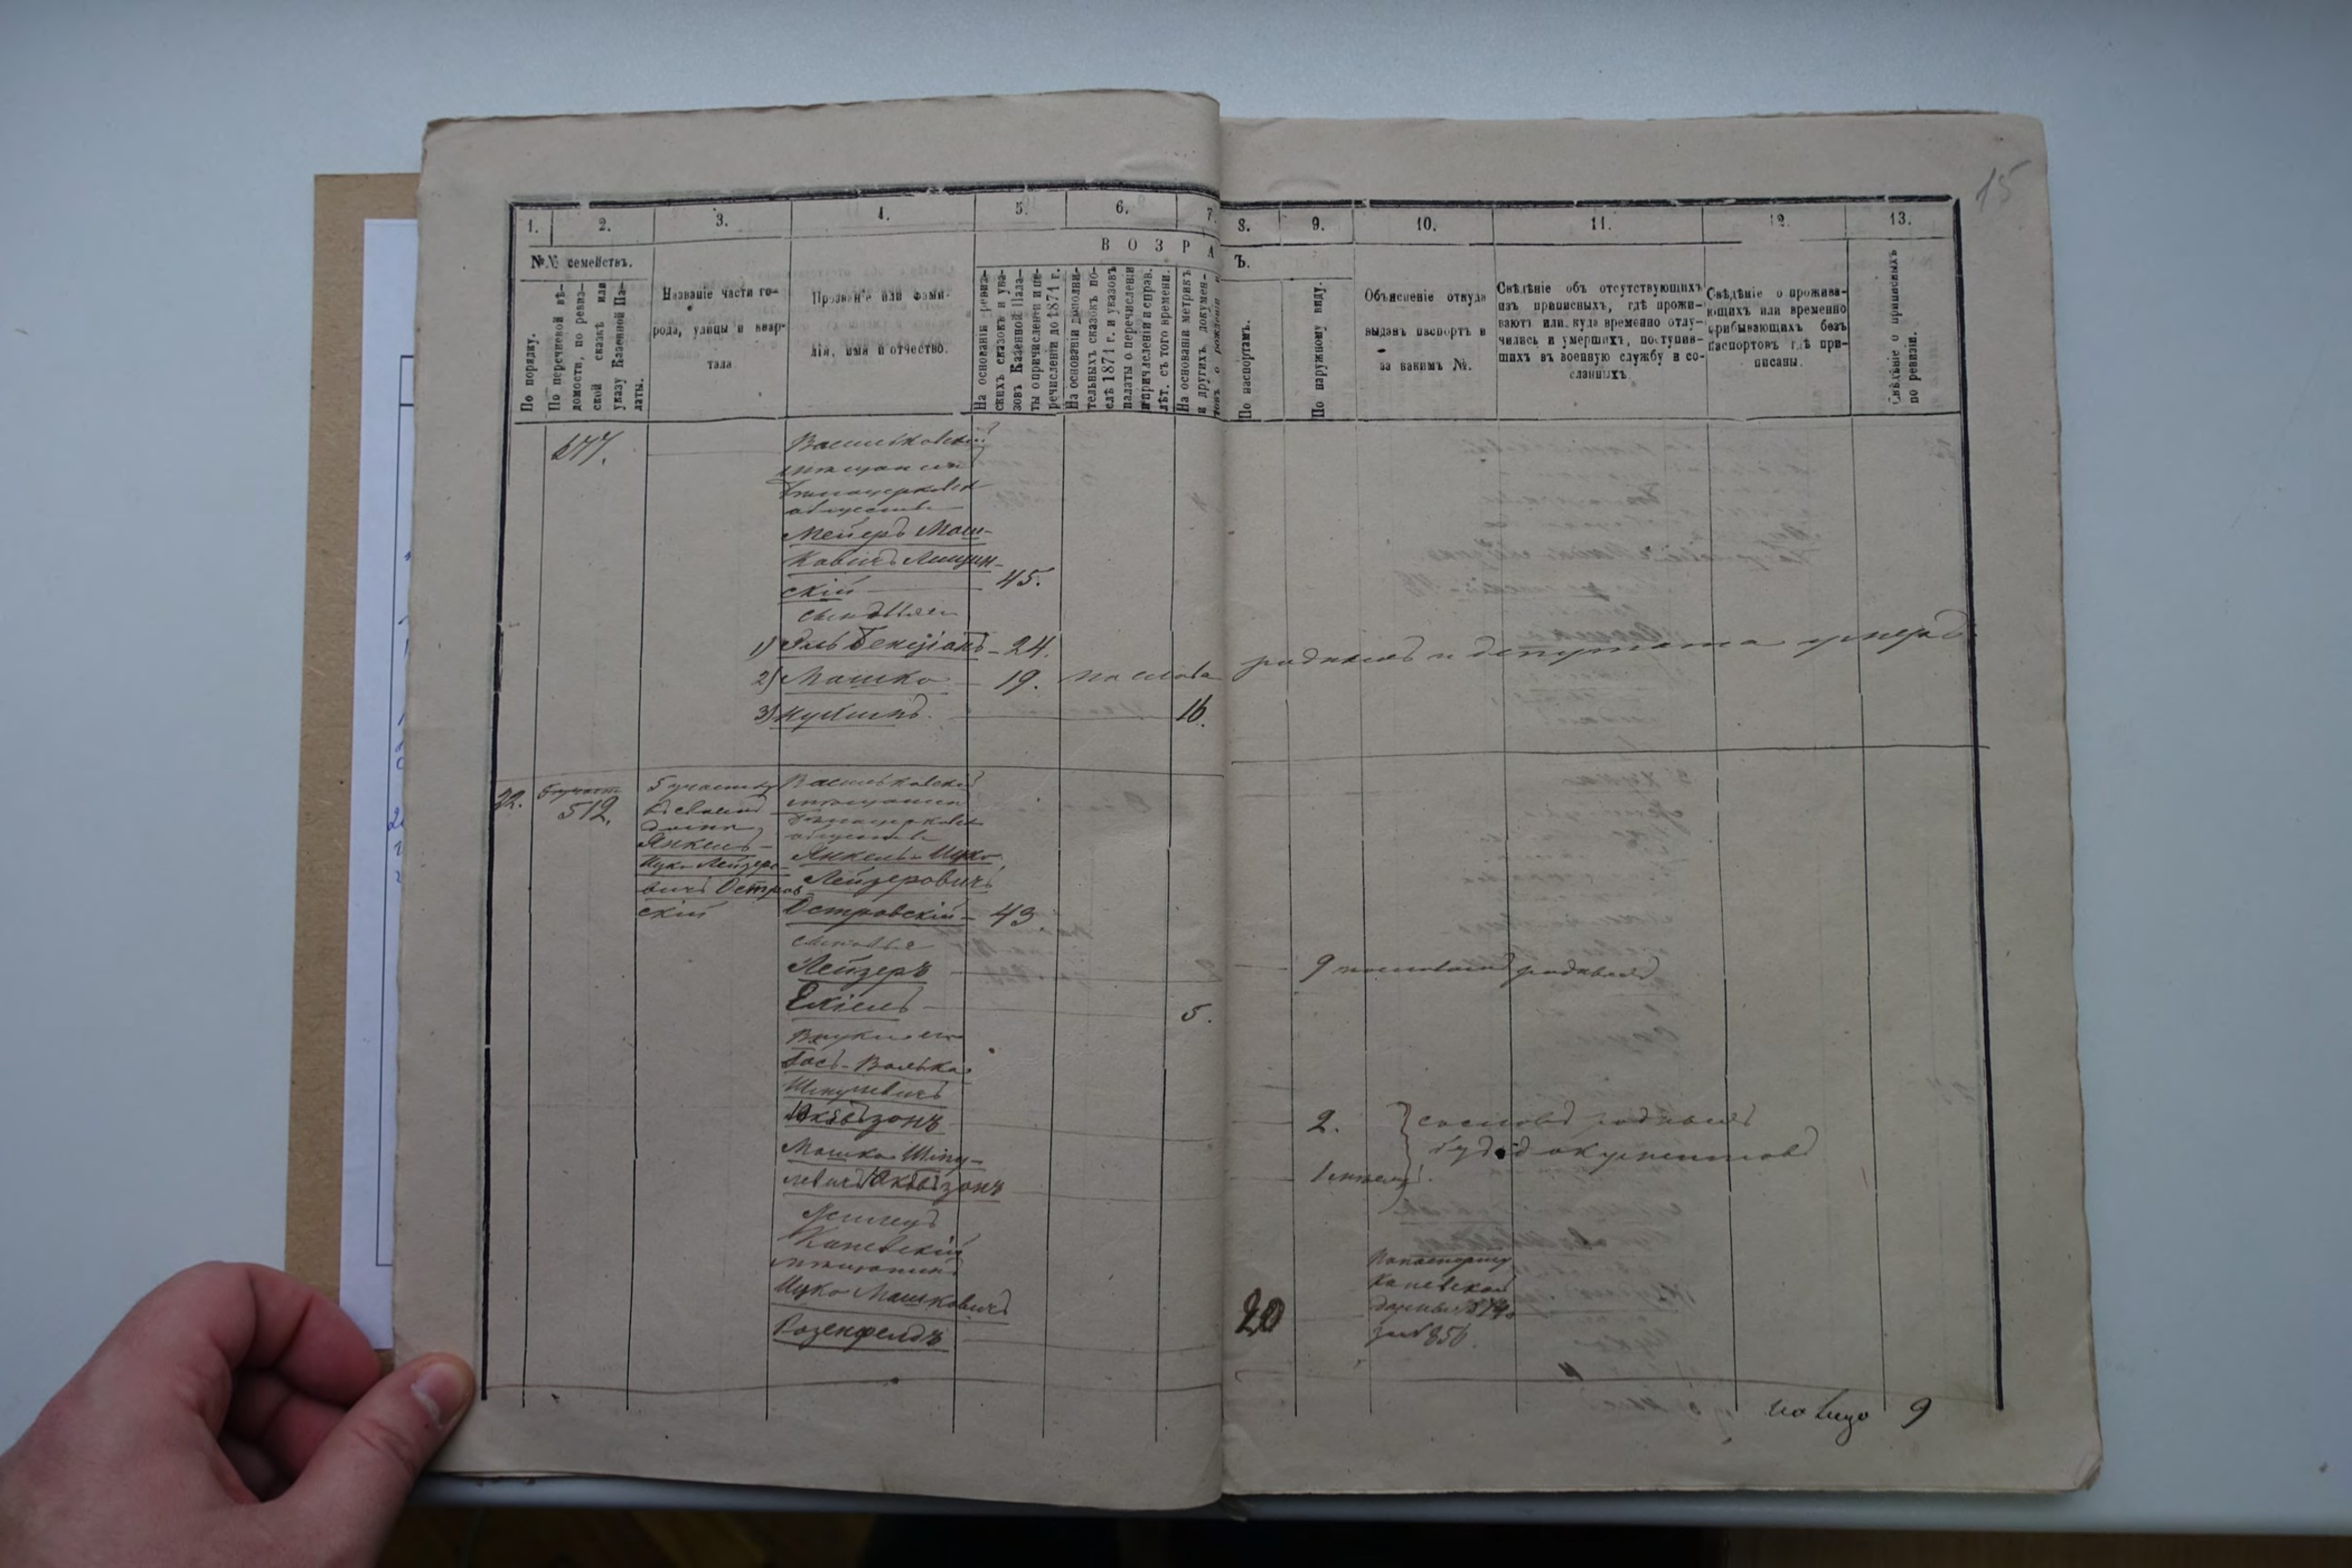 15
1.
2.
3.
4.
5.
6.
7.
8.
9.
10.
11.
12.
13.
В О З Р А
Ъ.
№№ семействъ.
По порядку.
По перечневой вѣ-
домости, по ревиз-
ской сказкѣ или
указу Казенной Па-
латы.
Названіе части го-
рода, улицы и квар-
тала
Прозваніе или фами-
лія, имя и отчество.
На основаніи ревиз-
скихъ сказокъ и ука-
зовъ Казенной Пала-
ты о причисленіи и пе-
речисленіи до 1871 г.
На основаніи дополни-
тельныхъ сказокъ по-
слѣ 1871 г. и указовъ
палаты о перечисленіи
и причисленіи и справ.
лѣт. съ того времени.
На основаніи метрикъ
и другихъ докумен-
товъ о рожденіи
По паспортамъ.
По наружному виду.
Объясненіе откуда
выданъ паспортъ и
за какимъ №.
Свѣдѣніе объ отсутствующихъ
изъ приписныхъ, гдѣ прожи-
ваютъ или куда временно отлу-
чились и умершихъ, поступив-
шихъ въ военную службу и со-
сланныхъ.
Свѣдѣніе о прожива-
ющихъ или временно
прибывающихъ безъ
паспортовъ гдѣ при-
писаны.
Свѣдѣніе о приписныхъ
по ревизіи.
277.
Васильковскій
мѣщанинъ
Бѣлоцерковск
общества
Мейеръ Мош-
ковичъ Лищин-
скій 45.
сыновья
1) Эль Бенціанъ - 24.
2) Мошко 19. по слова родныхъ и депутата умеръ
3) Нухимъ. 16.
22. 512.
5 участку
въ своемъ
домѣ
Янкель-
Ицко Лейзеро-
вичъ Остров-
скій
Васильковскій
мѣщанинъ
Бѣлоцерковск
общества
Янкель-Ицко
Лейзеровичъ
Островскій - 43
сыновья
Лейзеръ 9 по словамъ родныхъ
Ехіель 5.
Внуки его
Іось-Волько
Шмулевичъ
Якобзонъ 2. со словъ родныхъ
Мошко Шму- безъ документовъ
левичъ Якобзонъ 1 мѣсяц.
Жилецъ
Каневскій
мѣщанинъ
Ицко Мошковичъ
Розенфельдъ 20
По паспорту
Каневской
думы 1874
за № 856.
на лицо 9